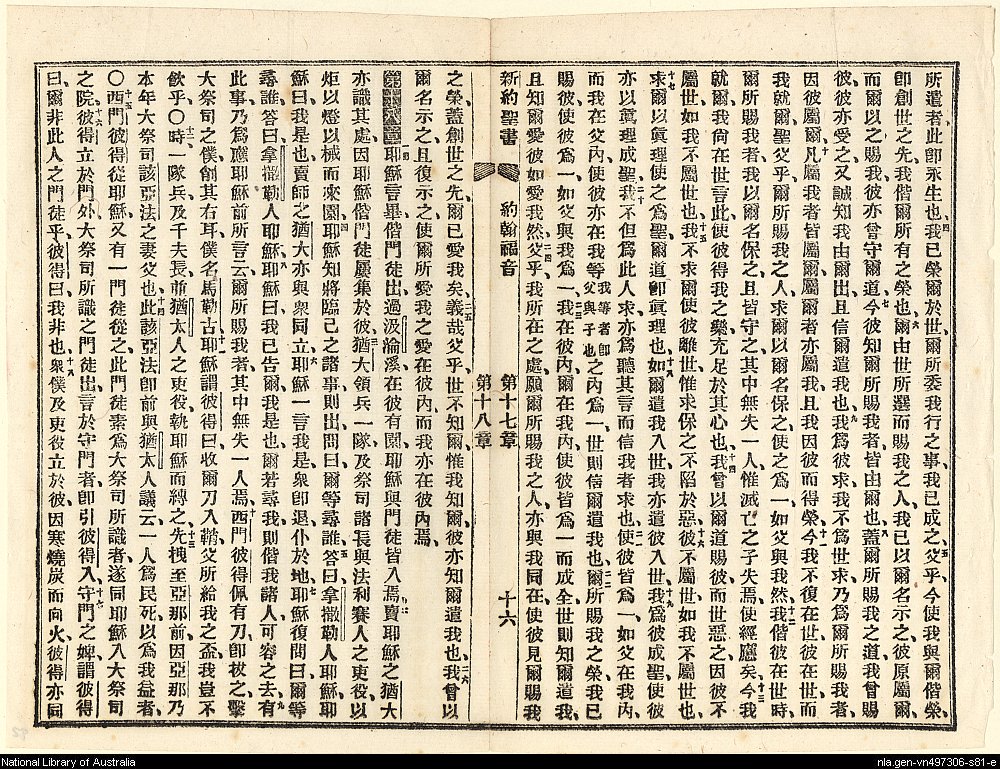 所遣者此卽永生也、四我已榮爾於世、爾所委我行之事我已成之、五父乎、今使我與爾偕榮、
卽創世之先、我偕爾所有之榮也、六爾由世所選而賜我之人、我已以爾名示之、彼原屬爾、
而爾以之賜我、彼亦曾守爾道、七今彼知爾所賜我者、皆由爾也、八蓋爾所賜我之道、我曾賜
彼、彼亦受之、又誠知我由爾出、且信爾遣我也、九我爲彼求、我不爲世求、乃爲爾所賜我者、
因彼屬爾、十凡屬我者皆屬爾、屬爾者亦屬我、且我因彼而得榮、十一今我不復在世、彼在世、而
我就爾、聖父乎、爾所賜我之人、求爾以爾名保之、使之爲一、如父與我然、十二我偕彼在世時、
爾所賜我者、我以爾名保之、且皆守之、其中無失一人、惟滅亡之子失焉、使經應矣、十三今我
就爾、我尚在世言此、使彼得我之樂、充足於其心也、十四我曾以爾道賜彼、而世惡之、因彼不
屬世、如我不屬世也、十五我不求爾使彼離世、惟求保之、不陷於惡、十六彼不屬世、如我不屬世也、
十七求爾以眞理使之爲聖、爾道卽眞理也、十八如爾遣我入世、我亦遣彼入世、十九我爲彼成聖、使彼
亦以眞理成聖、二十我不但爲此人求、亦爲聽其言而信我者求也、二一使彼皆爲一、如父在我內、
而我在父內、使彼亦在我等我等者卽父與子也之內爲一、世則信爾遣我也、二二爾所賜我之榮、我已
賜彼、使彼爲一、如父與我爲一、二三我在彼內、爾在我內、使彼皆爲一而成全、世則知爾遣我、
且知爾愛彼、如愛我然、二四父乎、我所在之處、願爾所賜我之人、亦與我同在、使彼見爾賜我
新約聖書 約翰福音 第十七章 第十八章 十六
之榮、蓋創世之先、爾已愛我矣、二五義哉父乎、世不知爾、惟我知爾、彼亦知爾遣我也、二六我曾以
爾名示之、且復示之、使爾所愛我之愛在彼內、而我亦在彼內焉、
第十八章 一耶穌言畢、偕門徒出、過汲淪溪、在彼有園、耶穌與門徒皆入焉、二賣耶穌之猶大、
亦識其處、因耶穌偕門徒屢集於彼、三猶大領兵一隊、及祭司諸長與法利賽人之吏役、以
炬以燈以械而來園、四耶穌知將臨己之諸事、則出問曰、爾等尋誰、五答曰、拿撒勒人耶穌、耶
穌曰、我是也、賣師之猶大、亦與衆同立、六耶穌一言我是、衆卽退仆於地、七耶穌復問曰、爾等
尋誰、答曰、拿撒勒人耶穌、八耶穌曰、我已告爾我是也、爾若尋我、則偕我諸人、可容之去、九有
此事、乃爲應耶穌前所言云、爾所賜我者、其中無失一人焉、十西門彼得佩有刀、卽拔之、擊
大祭司之僕、削其右耳、僕名馬勒古、十一耶穌謂彼得曰、收爾刀入鞘、父所給我之杯、我豈不
飲乎、〇十二時一隊兵及千夫長、猶太人之吏役、執耶穌而縛之、十三先拽至亞那前、因亞那乃
本年大祭司該亞法之妻父也、十四此該亞法、卽前與猶太人議云、一人爲民死、以爲我益者、
〇十五西門彼得從耶穌、又有一門徒從之、此門徒素爲大祭司所識者、遂同耶穌入大祭司
之院、十六彼得立於門外、大祭司所識之門徒出、言於守門者、卽引彼得入、十七守門之婢謂彼得
曰、爾非此人之門徒乎、彼得曰、我非也、十八衆僕及吏役立於彼、因寒燒炭而向火、彼得亦同
National Library of Australia
nla.gen-vn497306-s81-e